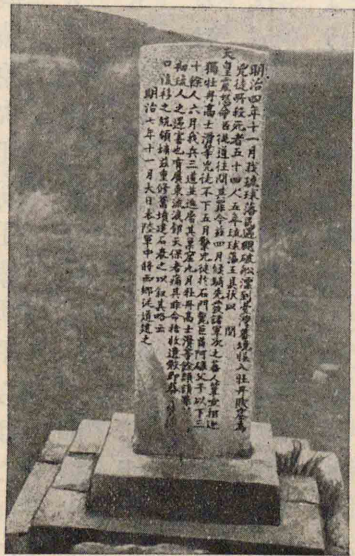 明治四年十一月我琉球藩民遇颶破船漂到臺灣蕃境悞入牡丹賊窟為
兇徒所殺死者五十四人五年琉球藩王具狀以聞
天皇震怒命臣從道往問其罪今茲四月候騎先發諸軍次之蕃人簞壺相迎
獨牡丹高士滑等兇徒不下五月擊兇徒於石門斃巨酋阿碌父子以下三
十餘人六月我兵三道並進屠其巢窟九月牡丹高士滑等餘類請罪
初琉人之遇害也有廣東流寓鄧天保者痛其非命拾收遺骸即葬
口後移之統領埔茲重修舊墳建石表之以敘其略云
明治七年十一月大日本陸軍中將西鄉從道建之